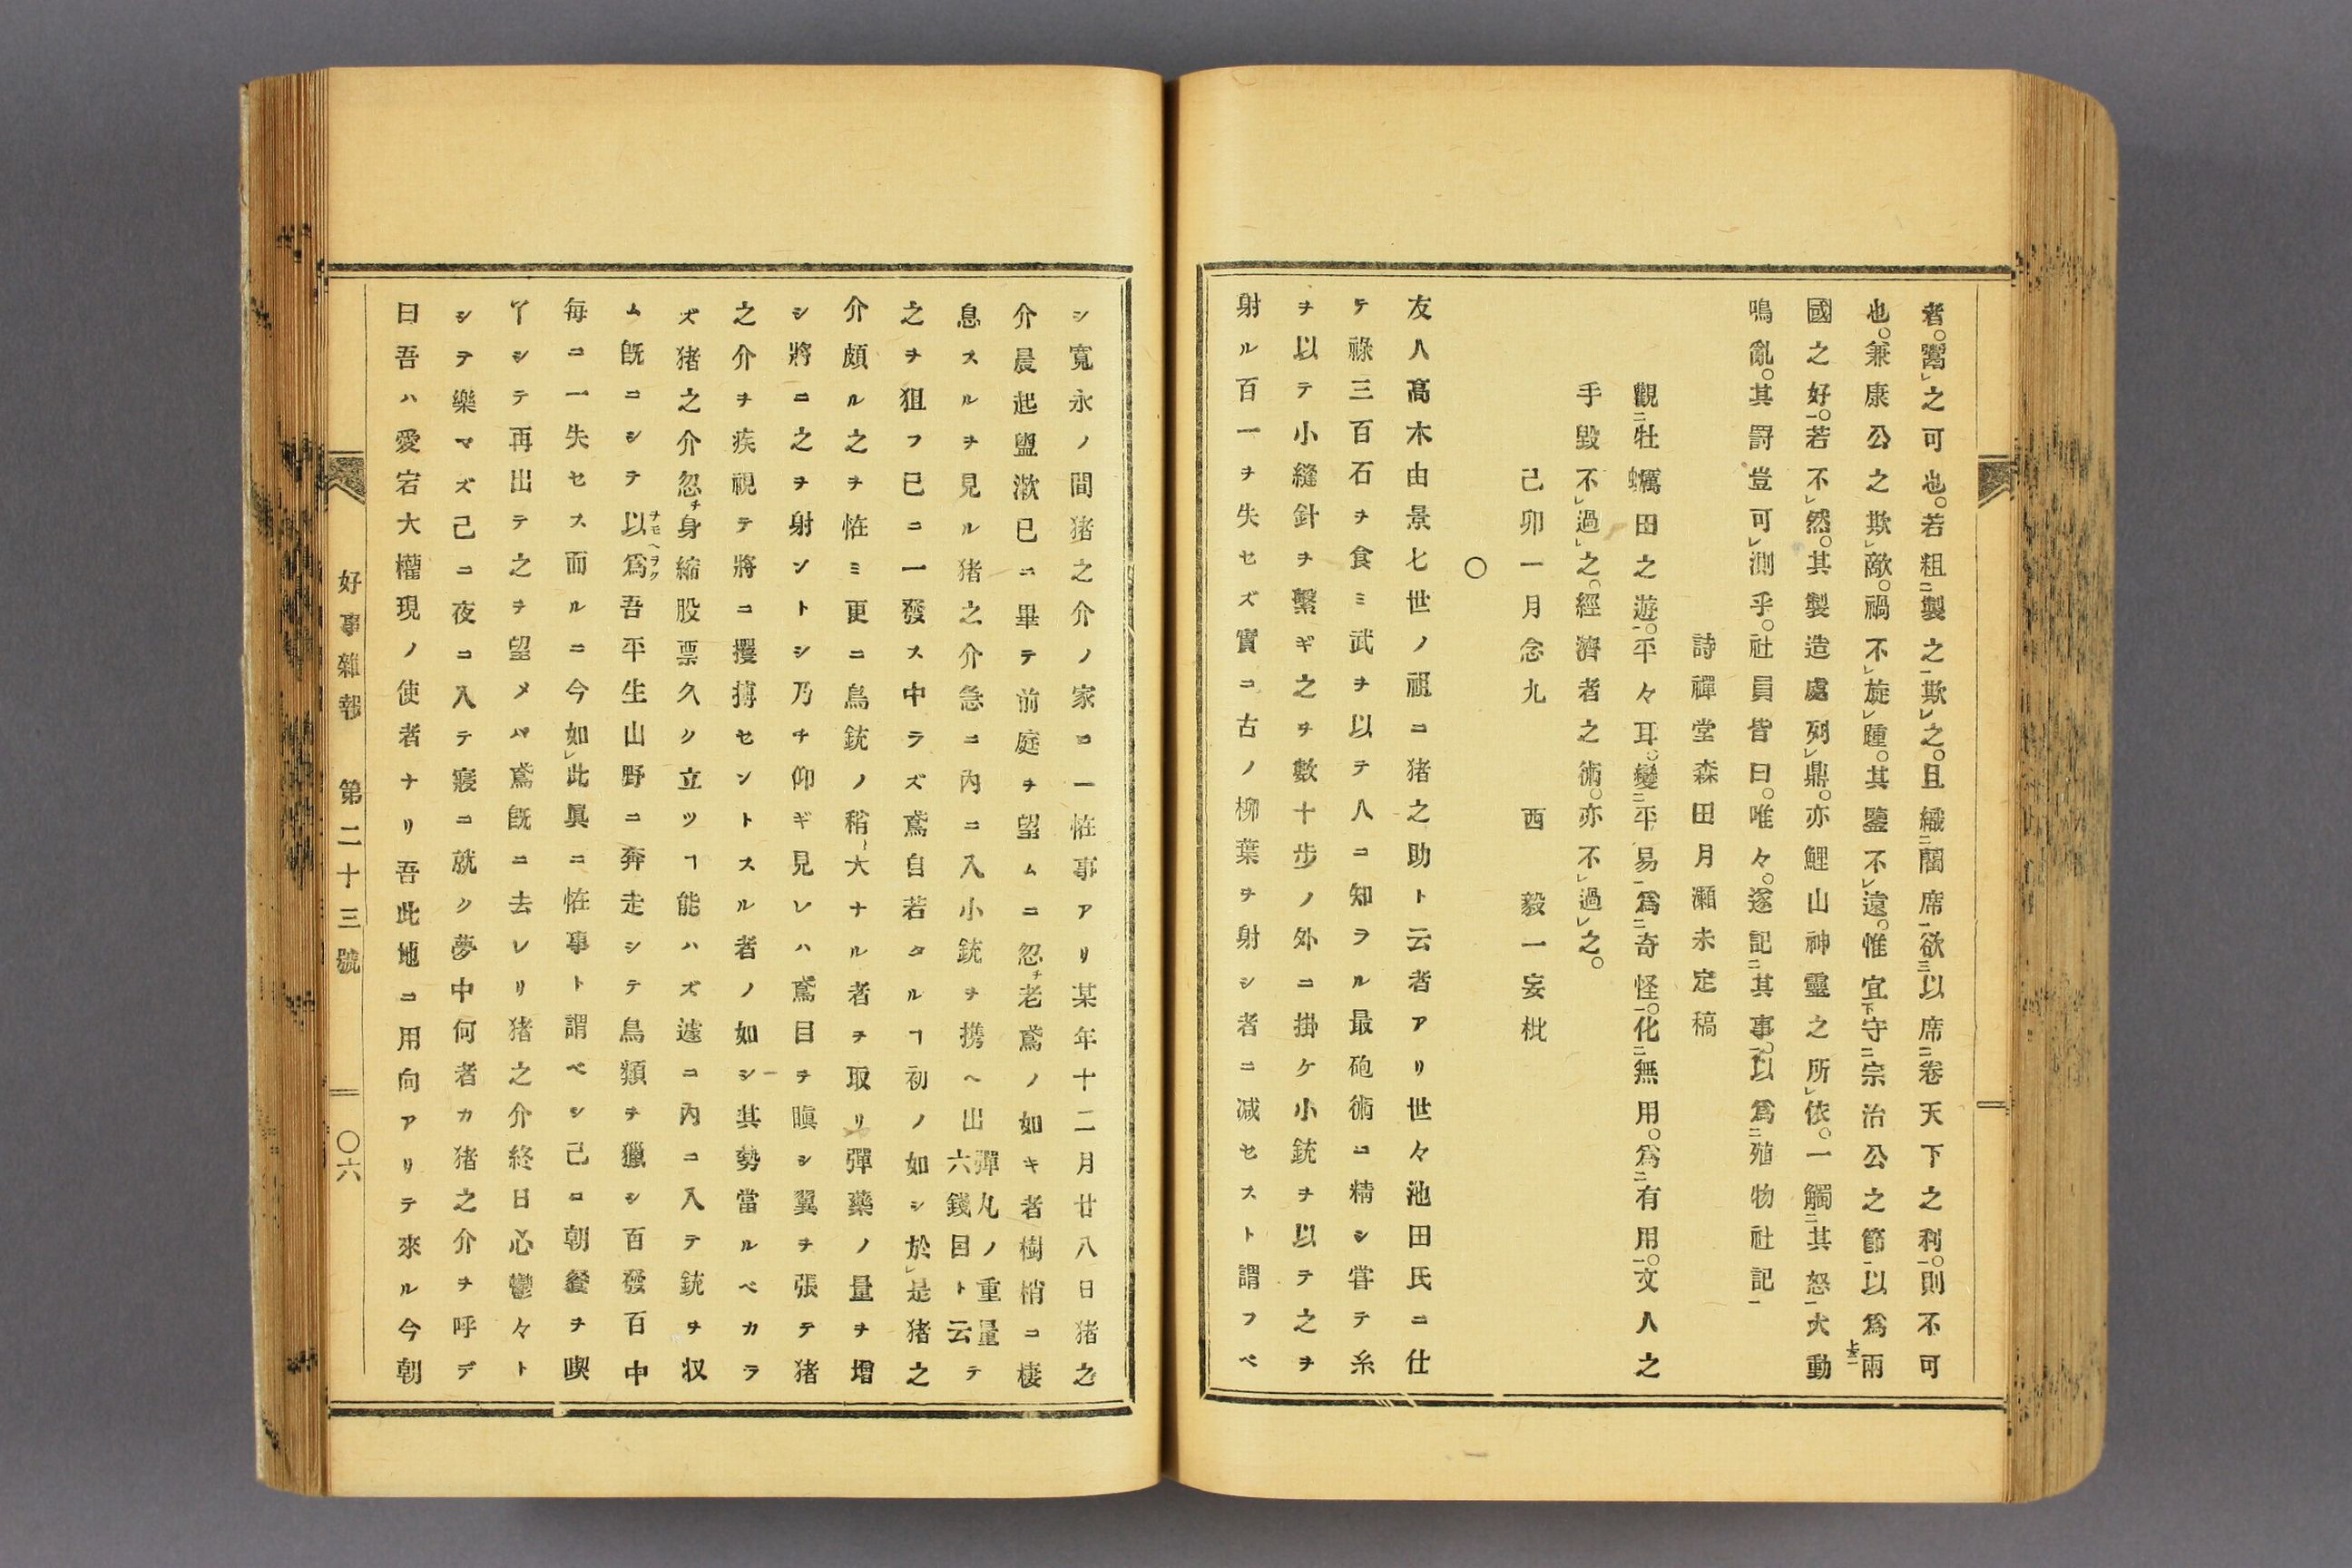 者。鬻㆑之可也。若粗㆓製之㆒欺㆑之。且織㆓藺席㆒欲㆘以席㆓卷天下之利㆒。則不可
也。兼康公之欺㆑敵。禍不㆑旋㆑踵。其鑒不㆑遠。惟宜㆘守㆓宗治公之節㆒以爲㆗兩
國之好㆖。若不㆑然。其製造處列㆑鼎。亦鯉山神靈之所㆑依。一觸㆓其怒㆒大動
鳴亂。其罸豈可㆑測乎。社員皆曰。唯々。遂記㆓其事㆒。以爲㆓殖物社記㆒
詩禪堂森田月瀬未定稿
觀㆓牡蠣田之遊㆒。平々耳。變㆓平易㆒爲㆓奇怪㆒。化㆓無用。爲㆓有用㆒。文人之
手毀不㆑過㆑之。經濟者之術。亦不㆑過㆑之。
己卯一月念九　西　毅一妄枇
〇
友人髙木由景七世ノ祖ニ猪之助ト云者アリ世々池田氏ニ仕
テ祿三百石ヲ食ミ武ヲ以テ人ニ知ヲル最砲術ニ精シ甞テ糸
ヲ以テ小縫針ヲ繫ギ之ヲ數十步ノ外ニ掛ケ小銃ヲ以テ之ヲ
射ル百一ヲ失セズ實ニ古ノ柳葉ヲ射シ者ニ减セスト謂フベ
シ寬永ノ間猪之介ノ家ニ一恠事アリ某年十二月廿八日猪之
介晨起盥漱已ニ畢テ前庭ヲ望ムニ忽チ老鳶ノ如キ者樹梢ニ棲
息スルヲ見ル猪之介急ニ內ニ入小銃ヲ携ヘ出彈丸ノ重量六錢目ト云テ
之ヲ狙フ已ニ一發ス中ラズ鳶自若タルヿ初ノ如シ於㆑是猪之
介頗ル之ヲ恠ミ更ニ鳥銃ノ稍〻大ナル者ヲ取リ彈藥ノ量ヲ增
シ將ニ之ヲ射ントシ乃チ仰ギ見レハ鳶目ヲ瞋シ翼ヲ張テ猪
之介ヲ疾視テ將ニ攫搏セントスル者ノ如シ其勢當ルベカラ
ズ猪之介忽チ身縮股票久ク立ツヿ能ハズ遽ニ內ニ入テ銃ヲ収
ム旣ニシテ以爲ヲモヘラク吾平生山野ニ奔走シテ鳥類ヲ獵シ百發百中
每ニ一失セス而ルニ今如㆑此眞ニ恠事ト謂ベシ己ニ朝餐ヲ喫
丫シテ再出テ之ヲ望メハ鳶旣ニ去レリ猪之介終日心鬱々ト
シテ樂マズ己ニ夜ニ入テ寢ニ就ク夢中何者カ猪之介ヲ呼デ
曰吾ハ愛宕大權現ノ使者ナリ吾此地ニ用向アリテ來ル今朝
好事雜報　第二十三號　〇六